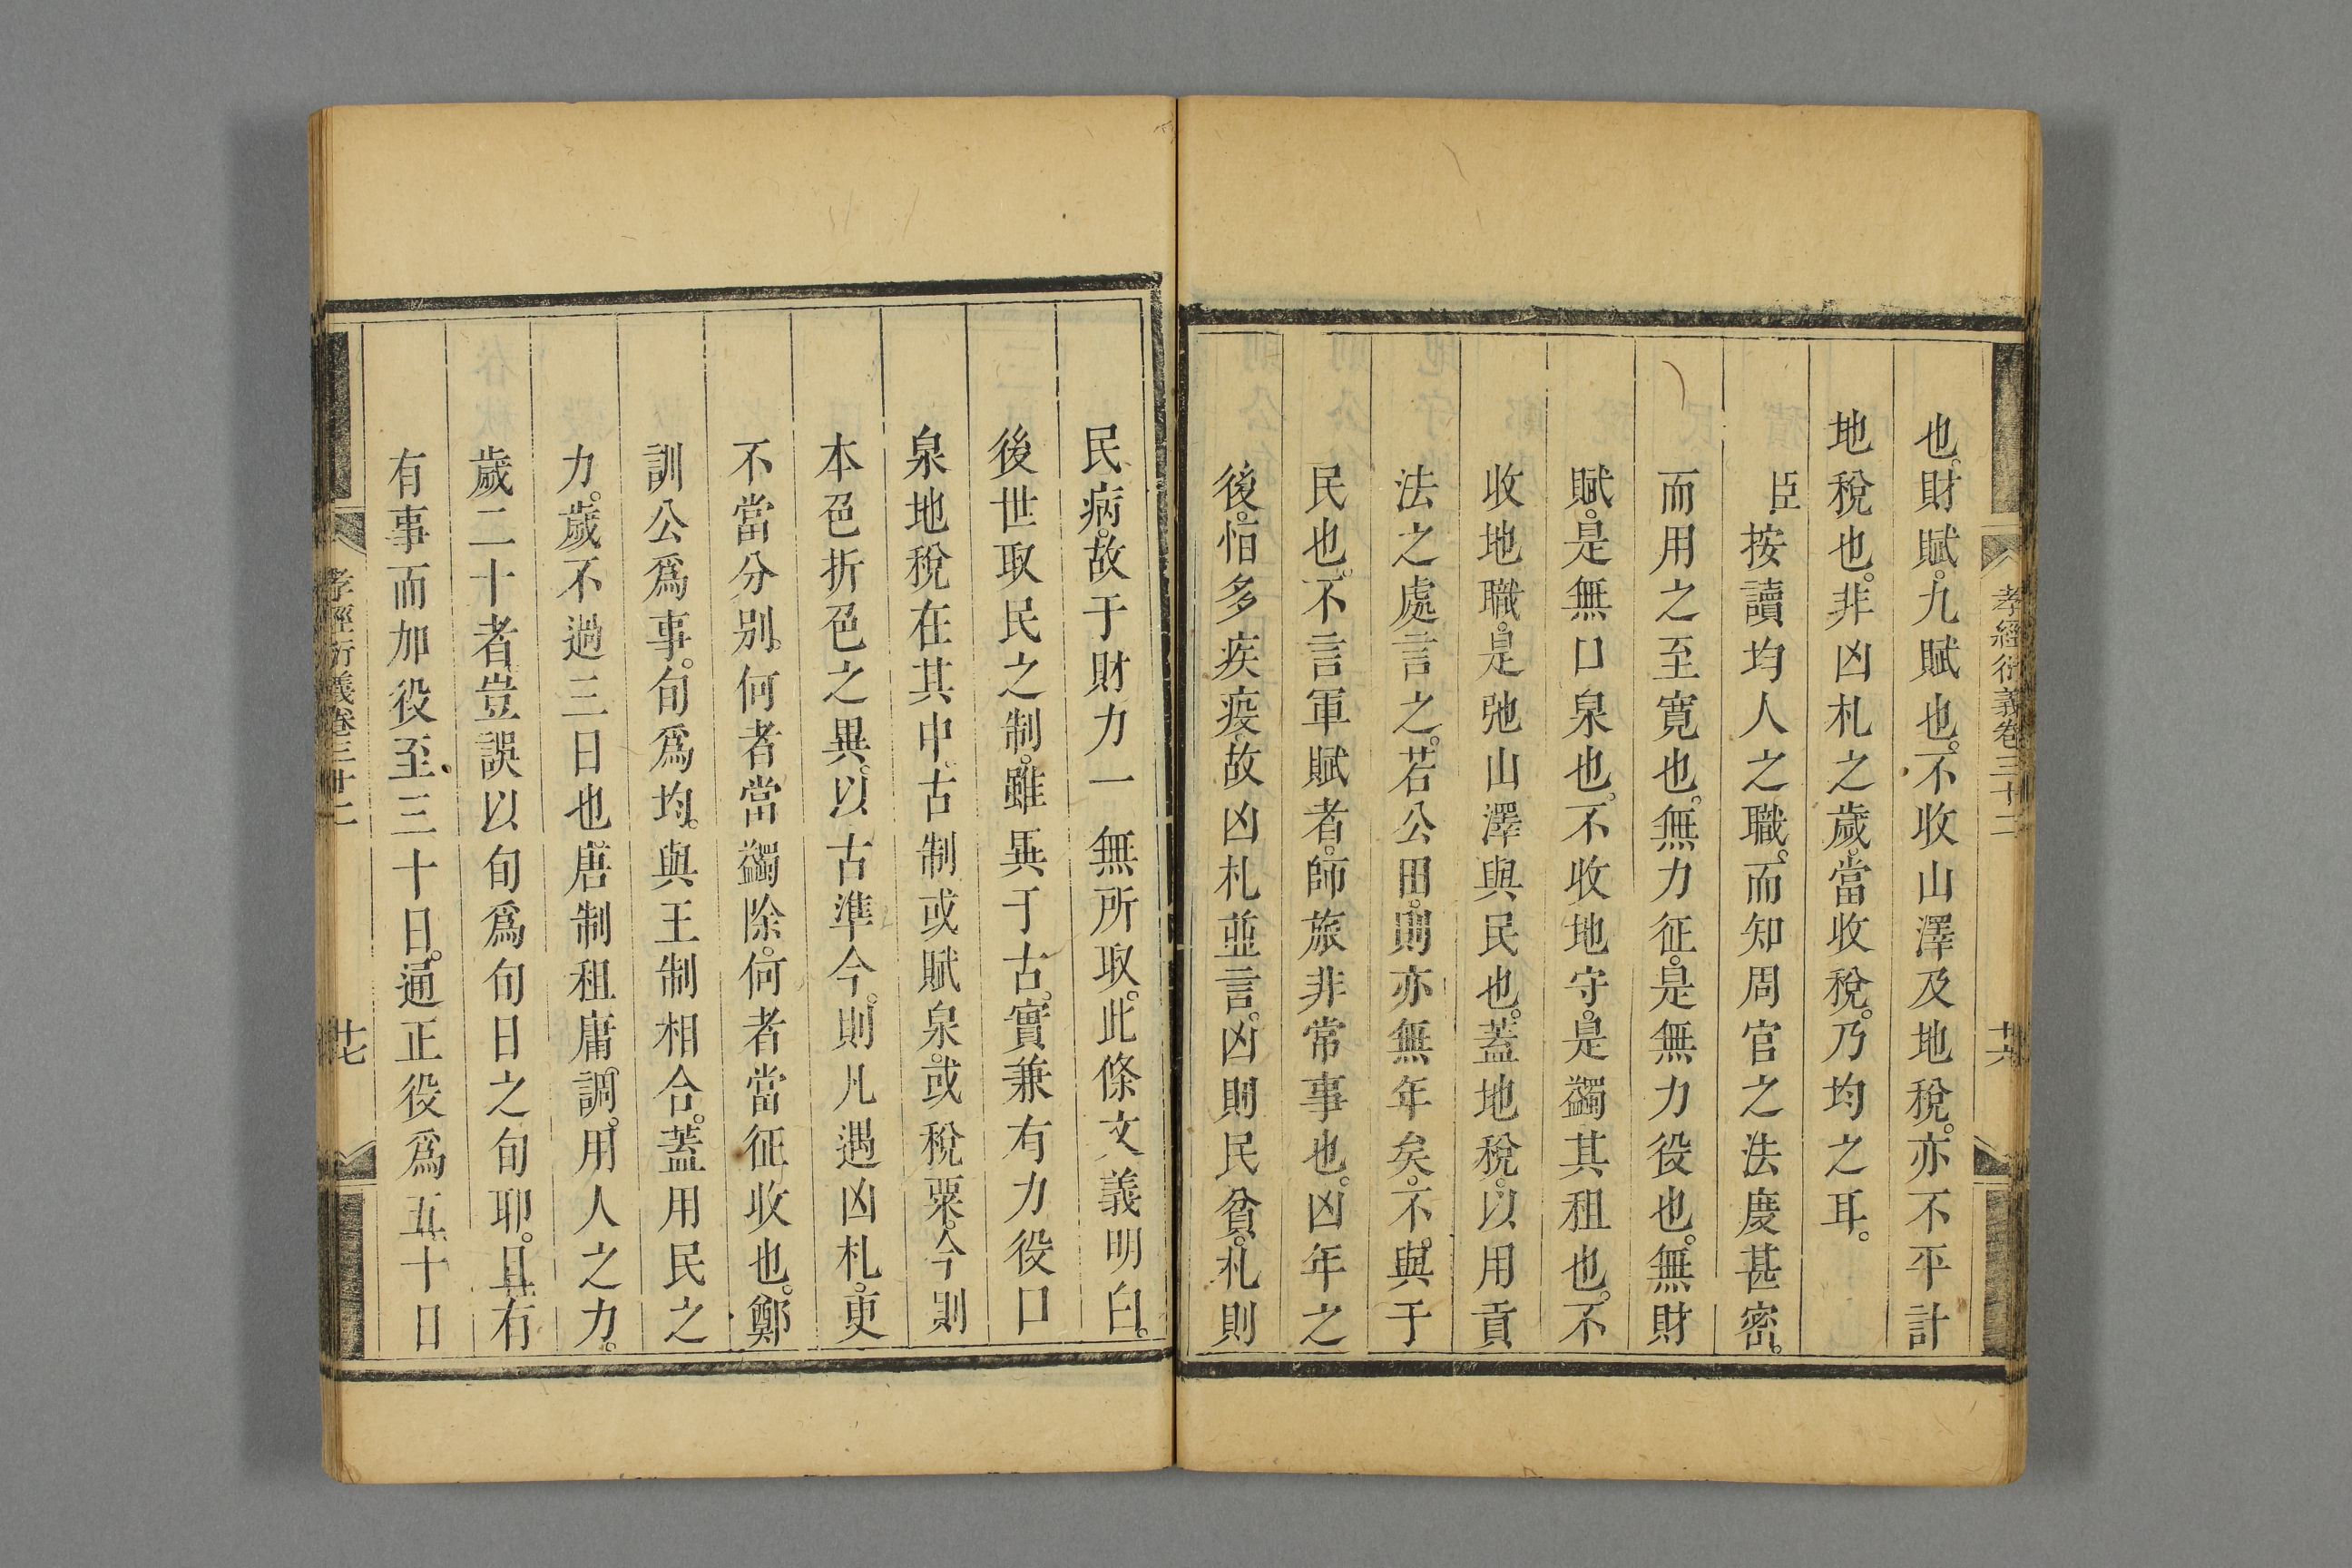 孝經衍義卷三十二
廿六
也。財賦。九賦也。不收山澤及地稅。亦不平計
地稅也。非凶札之歲。當收稅。乃均之耳。
臣按讀均人之職。而知周官之法度甚密。
而用之至寬也。無力征。是無力役也。無財
賦。是無口泉也。不收地守。是蠲其租也。不
收地職。是弛山澤與民也。蓋地稅。以用貢
法之處言之。若公田。則亦無年矣。不。與于
民也。不言軍賦者。師旅非常事也。凶年之
後。恒多疾疫。故凶札並言。凶則民貧。札則
民病。故于財力一無所取。此條文義明白。
後世取民之制。雖異于古。實兼有力役口
泉地稅在其中。古制或賦泉。或稅粟。今則
本色折色之異。以古準今。則凡遇凶札。更
不當分別。何者當蠲除。何者當征收也。鄭
訓公爲事。旬爲均。與王制相合。蓋用民之
力。歲不過三日也。唐制租庸調。用人之力。
歲二十者。豈誤以旬爲旬日之旬耶。且有
有事而加役至三十日。通正役爲五十日
孝經衍義卷三十二
廿七